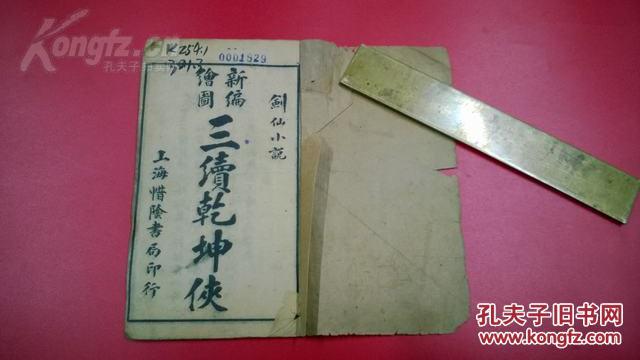 Kongfz.com
孔夫子旧书网
K254.1
0001829
劍仙小說
新編
繪圖
三續乾坤俠
上海惜陰書局印行
孔夫子旧书网
www.kongfz.com